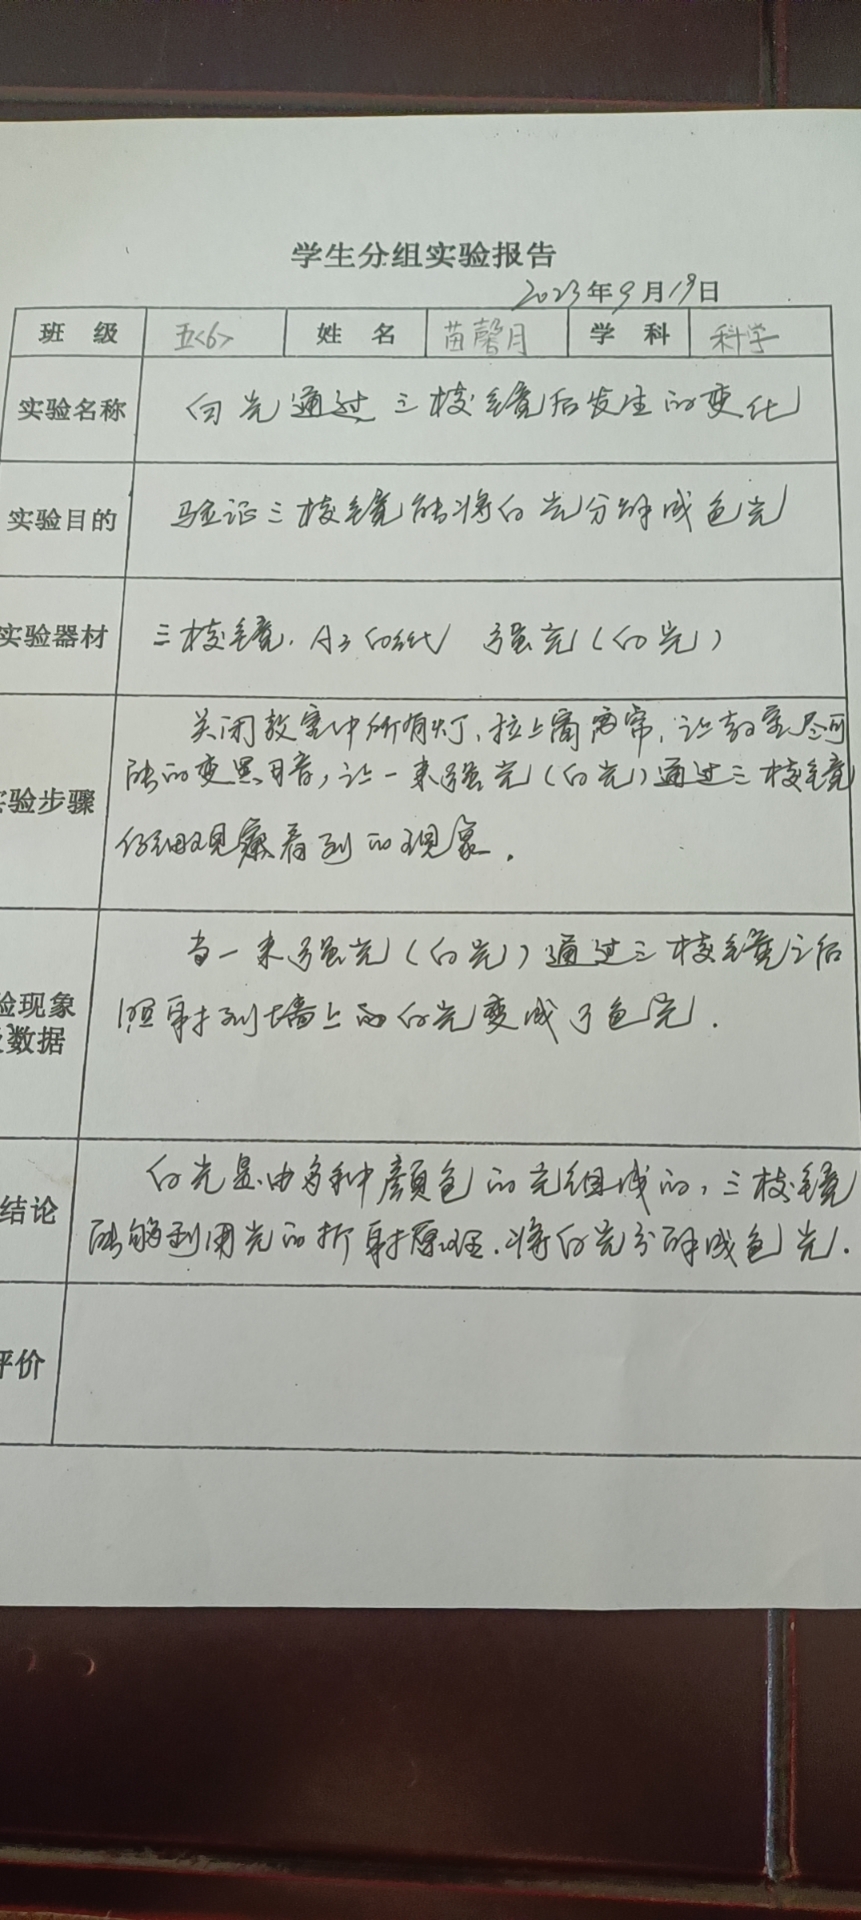 学生分组实验报告
2023年9月19日
班 级 五<6> 姓 名 苗馨月 学 科 科学
实验名称 白光通过三棱镜后发生的变化
实验目的 验证三棱镜能将白光分解成色光
实验器材 三棱镜. 白纸 强光(白光)
关闭教室中所有灯、拉上窗帘, 让教室尽可
实验步骤 能的变黑暗, 让一束强光(白光)通过三棱镜
仔细观察看到的现象.
当一束强光(白光)通过三棱镜之后
验现象 照射到墙上的白光变成了色光.
数据
白光是由多种颜色的光组成的, 三棱镜
结论 能够利用光的折射原理.将白光分解成色光.
评价